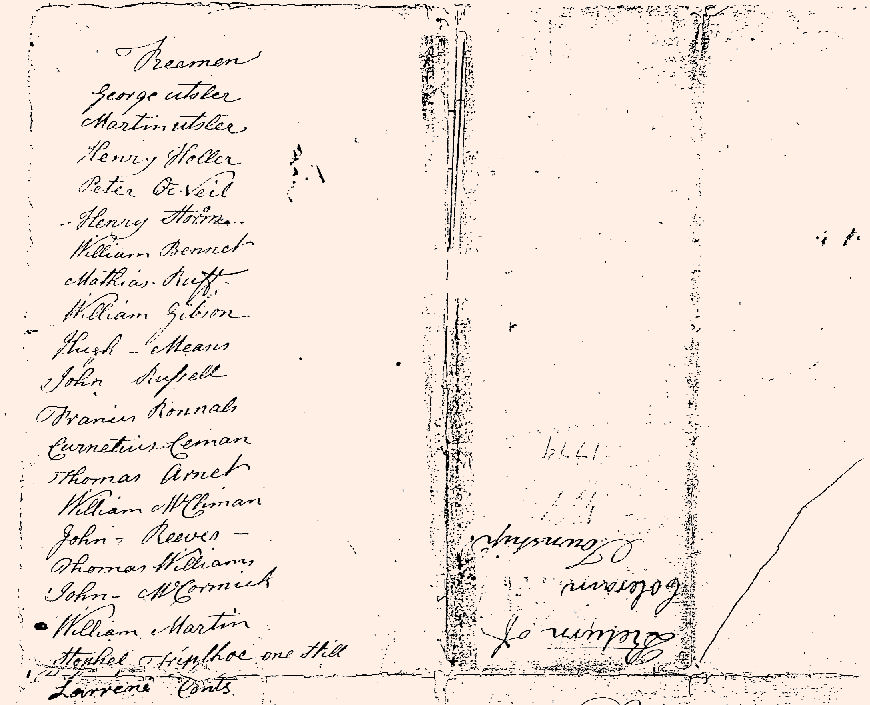 Freamen
George utsler
Martin utsler
Henry Holler
Peter OcVeil
Henry Storm
William Bennet
Mathias Ruff
William Gibson
Hugh - Means
John Russell
Francis Ronnals
Curnetius Ceman
Thomas Arnet
William McCliman
John - Reeves -
Thomas Williams
John - McCormick
William Martin
Stophel one Still
Conts
Return of
Colerain
Township
1774